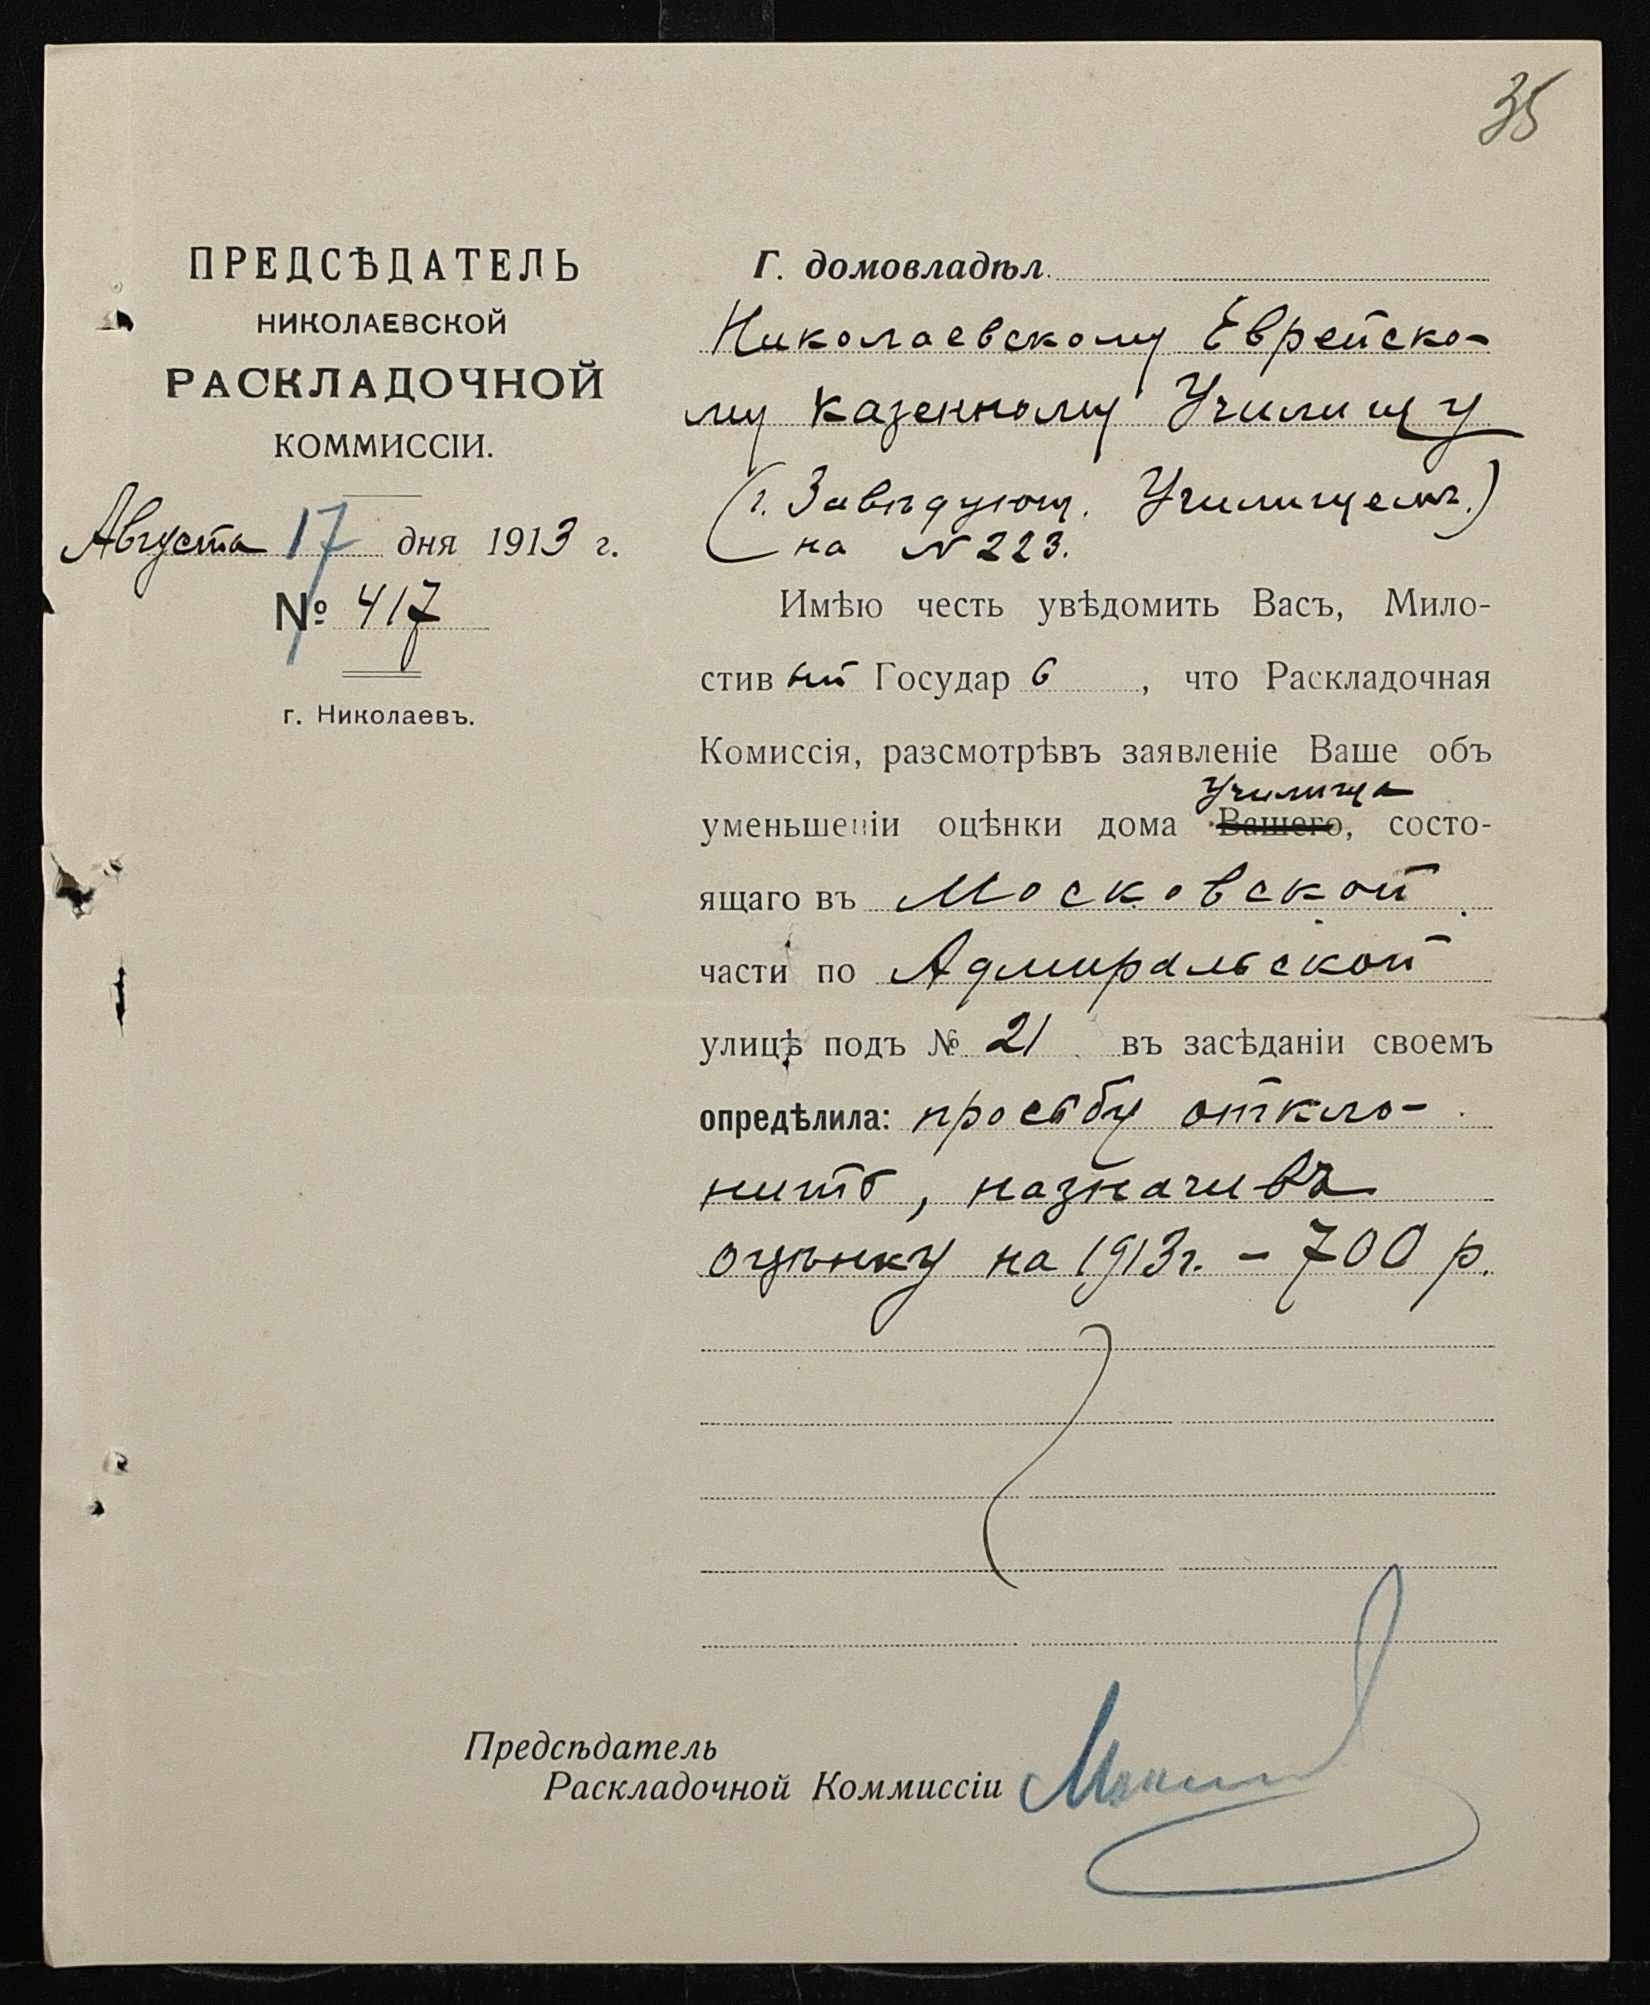 35
ПРЕДСѢДАТЕЛЬ
НИКОЛАЕВСКОЙ
РАСКЛАДОЧНОЙ
КОММИССІИ.
Августа 17 дня 1913 г.
№ 417
г. Николаевъ.
Г. домовладѣл
Николаевскому Еврейско-
му казенному Училищу
(г. Завѣдующ. Училищемъ.)
на № 223.
Имѣю честь увѣдомить Васъ, Мило-
стивый Государь, что Раскладочная
Комиссія, разсмотрѣвъ заявленіе Ваше объ
Училища
уменьшеніи оцѣнки дома Вашего, состо-
ящаго въ Московской
части по Адмиральской
улицѣ подъ № 21 въ засѣданіи своемъ
опредѣлила: просьбу откло-
нить, назначивъ
оцѣнку на 1913 г. - 700 р.
Предсѣдатель
Раскладочной Коммиссіи